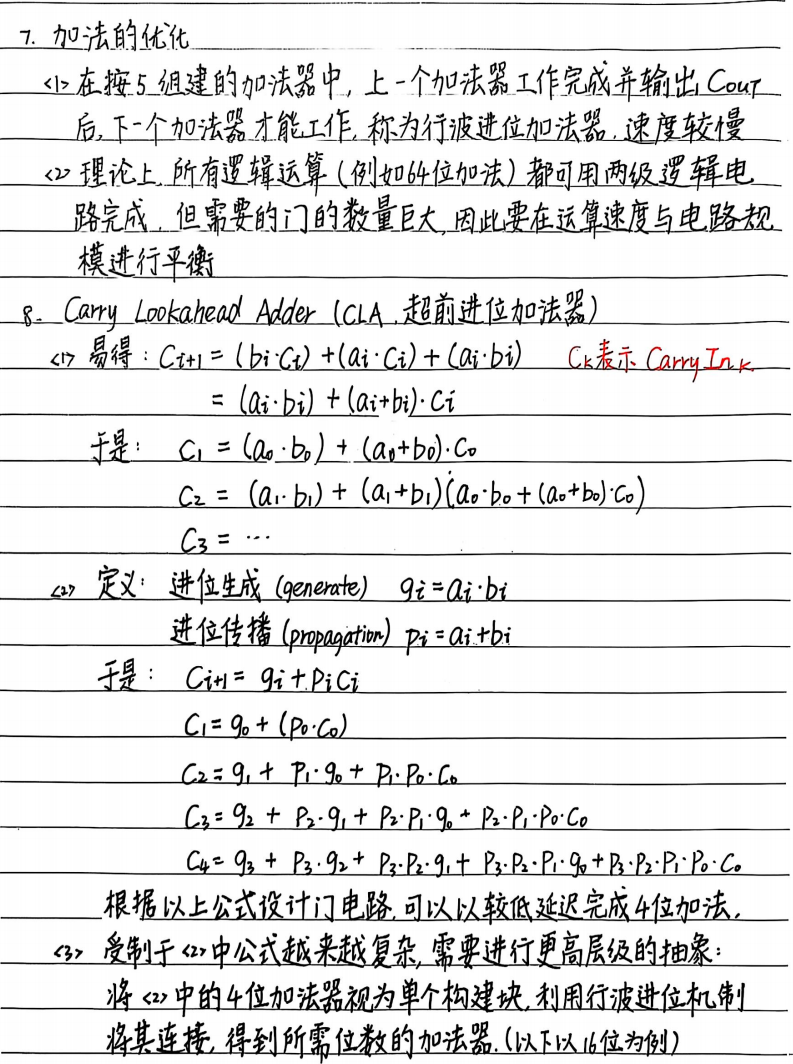 7. 加法的优化
<1> 在按5组建的加法器中, 上一个加法器工作完成并输出CouT
后, 下一个加法器才能工作, 称为行波进位加法器. 速度较慢
<2> 理论上, 所有逻辑运算 (例如64位加法) 都可用两级逻辑电
路完成. 但需要的门的数量巨大, 因此要在运算速度与电路规
模进行平衡
8. Carry Lookahead Adder (CLA, 超前进位加法器)
<1> 易得: Ci+1 = (bi·Ci) + (ai·Ci) + (ai·bi) Ck表示 Carry In k
= (ai·bi) + (ai+bi)·Ci
于是: C1 = (a0·b0) + (a0+b0)·C0
C2 = (a1·b1) + (a1+b1)(a0·b0+(a0+b0)·C0)
C3 = ...
<2> 定义: 进位生成 (generate) gi=ai·bi
进位传播 (propagation) pi=ai+bi
于是: Ci+1= gi+piCi
C1= g0+ (p0·C0)
C2= g1+ p1·g0+ p1·p0·C0
C3= g2 + p2·g1+ p2·p1·g0+ p2·p1·p0·C0
C4= g3 + p3·g2+ p3·p2·g1+ p3·p2·p1·g0+p3·p2·p1·p0·C0
根据以上公式设计门电路, 可以以较低延迟完成4位加法.
<3> 受制于<2>中公式越来越复杂, 需要进行更高层级的抽象:
将<2>中的4位加法器视为单个构建块, 利用行波进位机制
将其连接, 得到所需位数的加法器. (以下以16位为例)